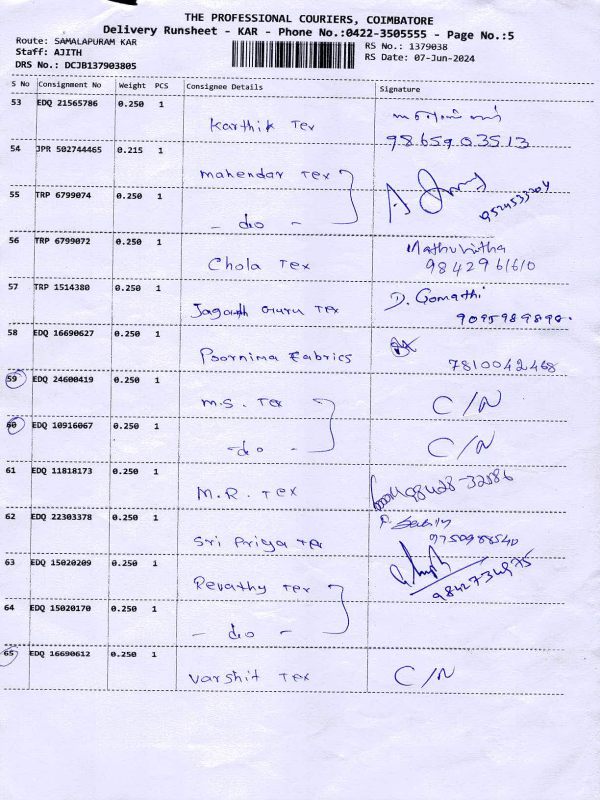 THE PROFESSIONAL COURIERS, COIMBATORE
Delivery Runsheet - KAR - Phone No.:0422-3505555 - Page No.:5
Route: SAMALAPURAM KAR
Staff: AJITH
DRS No.: DCJB137903805
RS No.: 1379038
RS Date: 07-Jun-2024
S No Consignment No Weight PCS Consignee Details Signature
53 EDQ 21565786 0.250 1
Karthik Tex
9865903513
54 JPR 502744465 0.215 1
Mahendar Tex
55 TRP 6799074 0.250 1
- do -
9524533204
56 TRP 6799072 0.250 1
Chola Tex
Mathuvitha
9842961610
57 TRP 1514380 0.250 1
Jagath Guru Tex
D. Gomathi
9095989898.
58 EDQ 16690627 0.250 1
Poornima Fabrics
7810042468
59 EDQ 24600419 0.250 1
M.S. Tex C/N
60 EDQ 10916067 0.250 1
- do - C/N
61 EDQ 11818173 0.250 1
M.R. Tex
98428-32586
62 EDQ 22303378 0.250 1
Sri Priya Tex
9750988540
63 EDQ 15020209 0.250 1
Revathy Tex
9842734975
64 EDQ 15020170 0.250 1
- do -
65 EDQ 16690612 0.250 1
Varshit Tex C/N